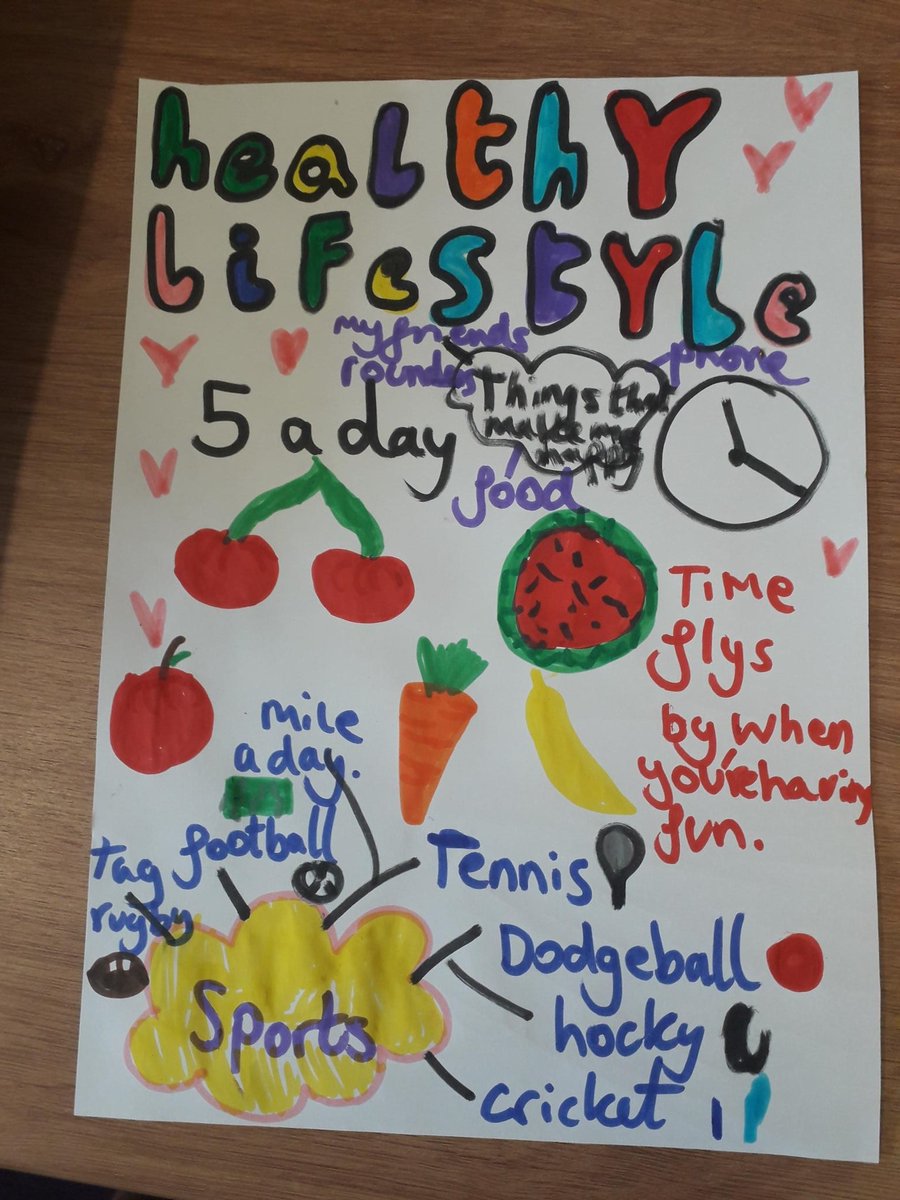 healthY
LiFestYLe
my friends
rounders
phone
Things that
make me
happy
5 a day
food
Time
flys
by when
you're having
fun.
mile
a day.
football
Tag
rugby
Tennis
Dodgeball
hocky
cricket
Sports